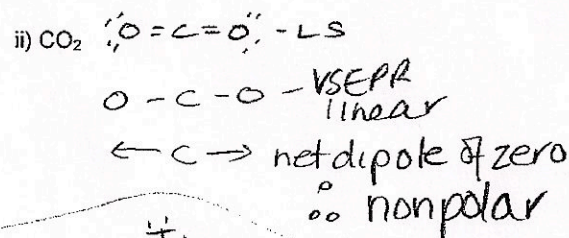 ii) CO₂ :Ö=C=Ö: - LS
O - C - O - VSEPR
linear
← C → net dipole of zero
∴ nonpolar